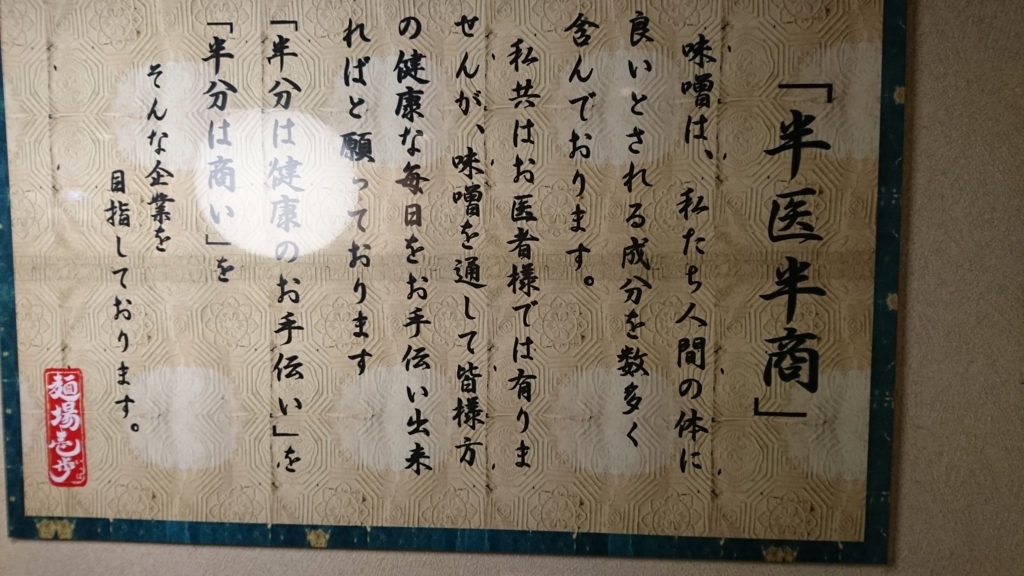 「半医半商」
味噌は、私たち人間の体に
良いとされる成分を数多く
含んでおります。
私共はお医者様では有りま
せんが、味噌を通して皆様方
の健康な毎日をお手伝い出来
ればと願っております
「半分は健康のお手伝い」を
「半分は商い」を
そんな企業を
目指しております。
麺場壱歩